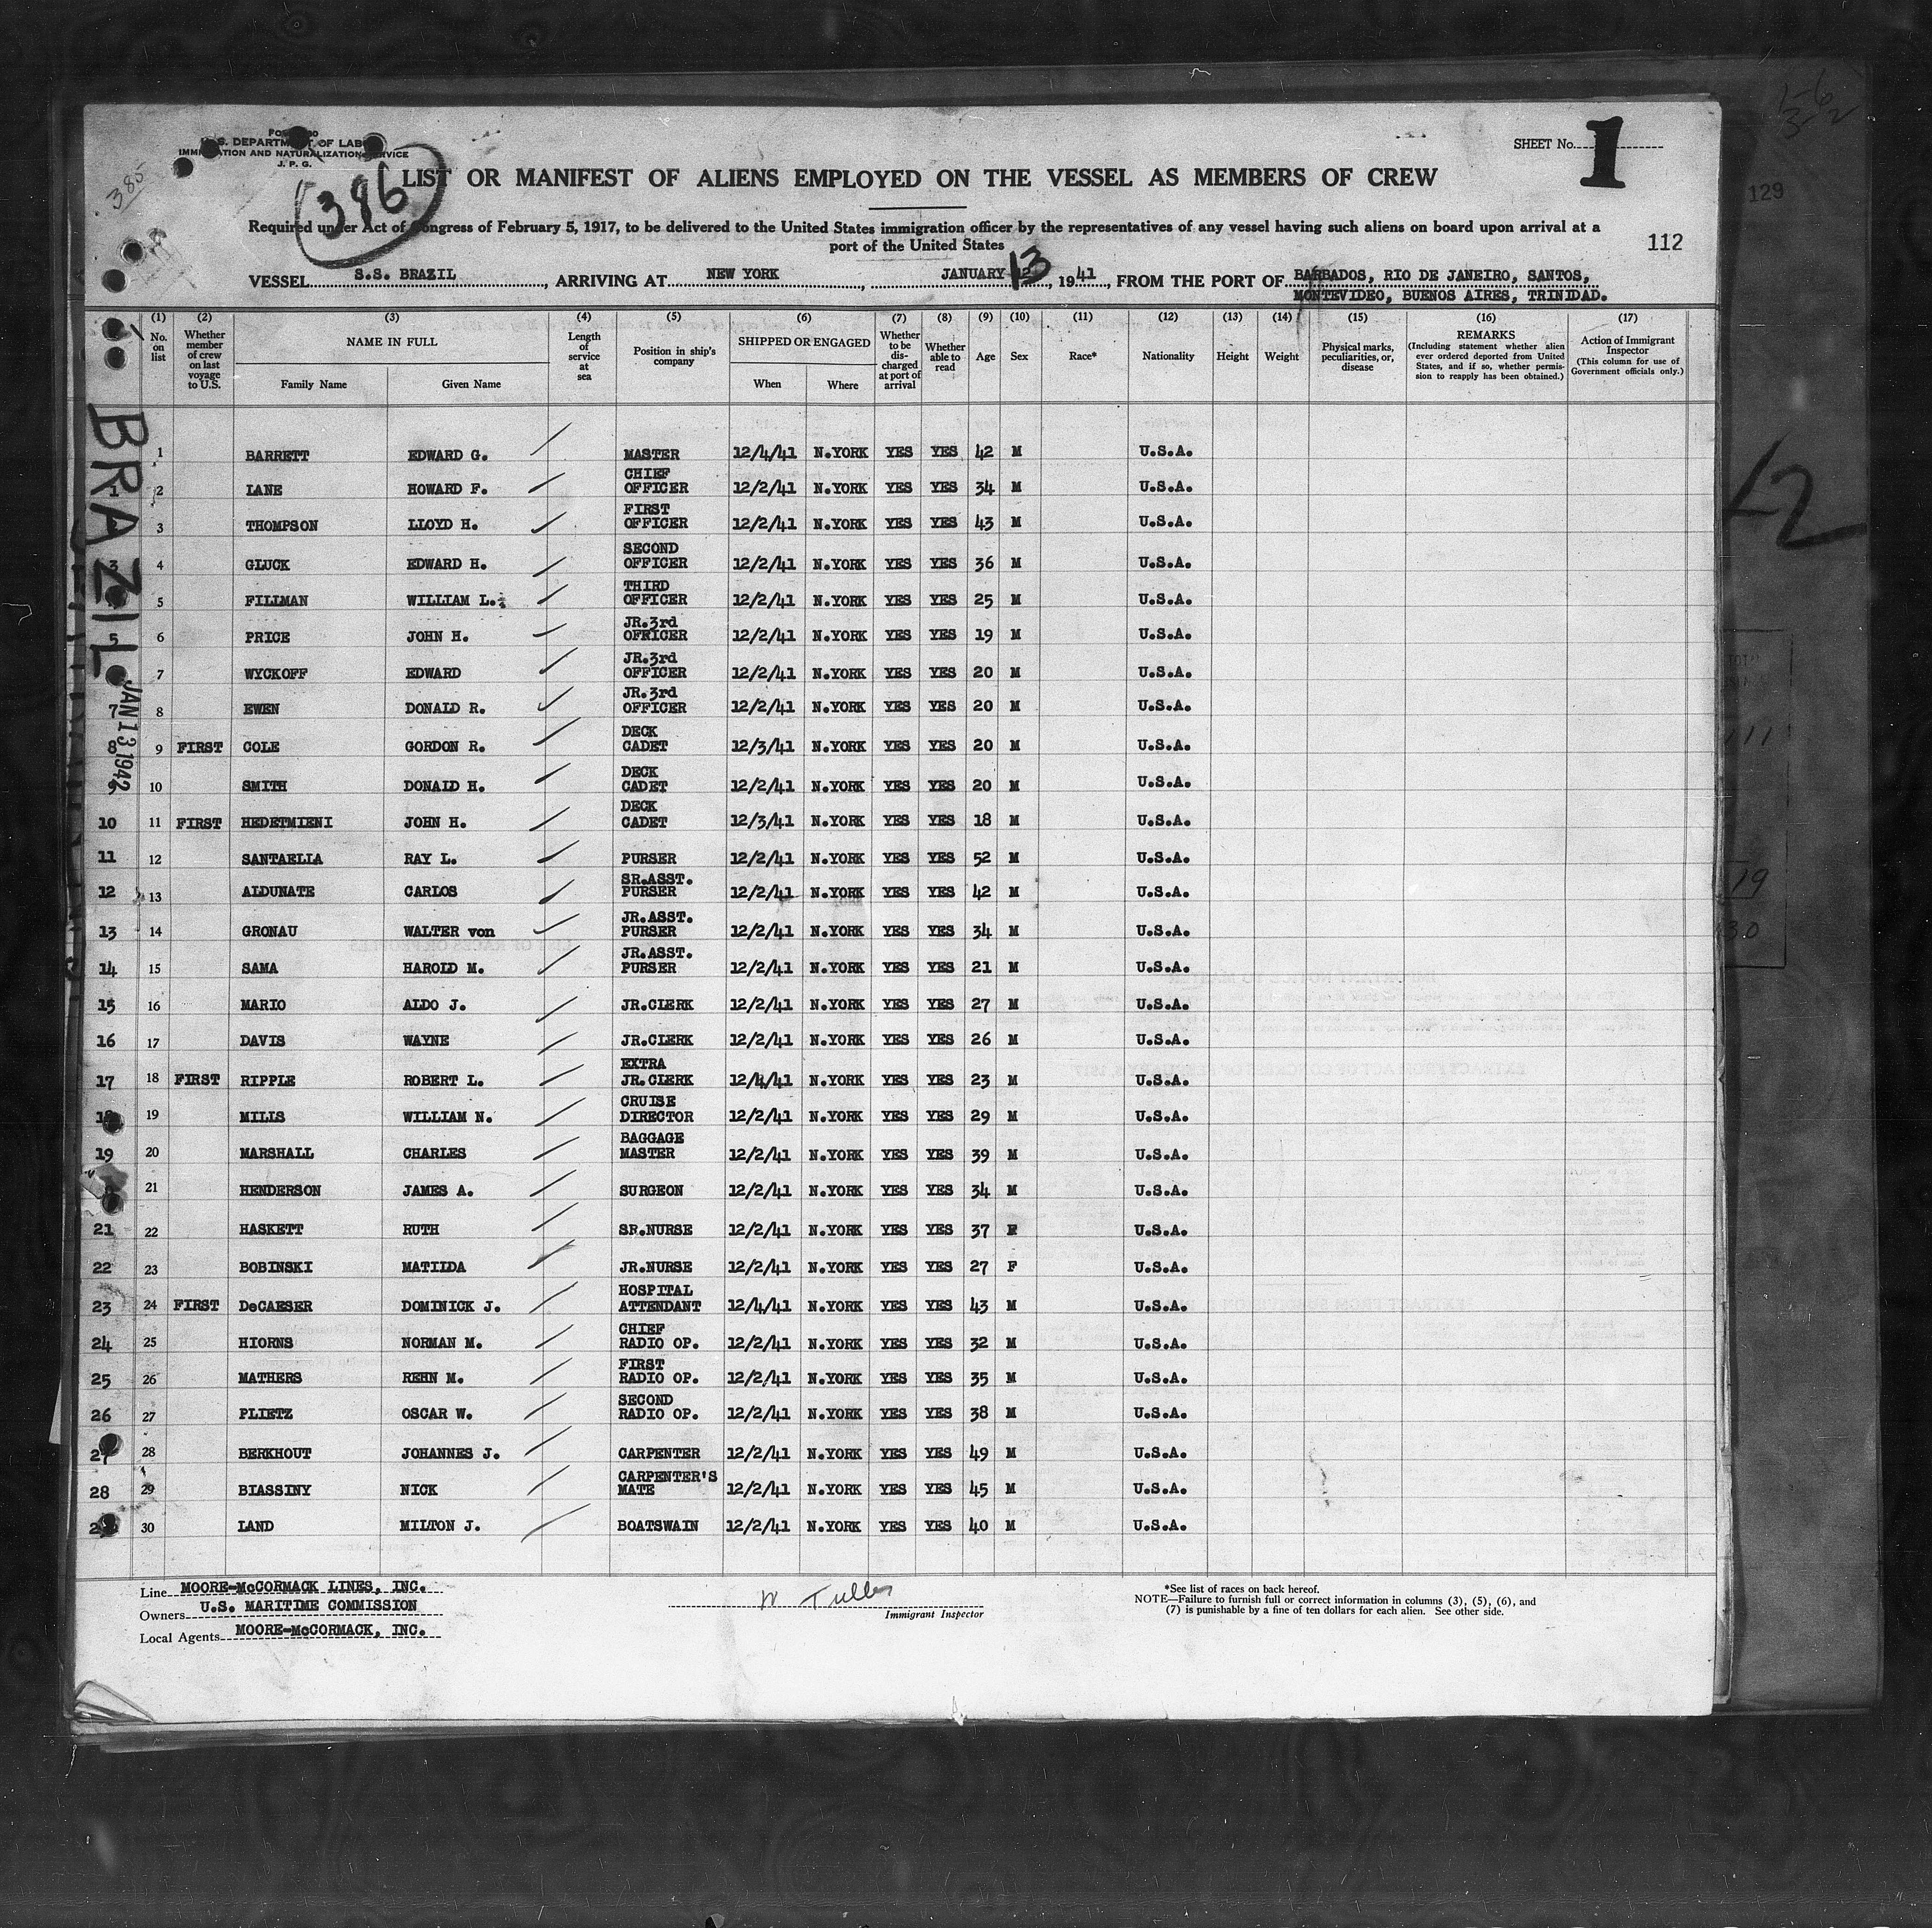 U.S. DEPARTMENT OF LABOR
IMMIGRATION AND NATURALIZATION SERVICE
J. P. G.
SHEET No. 1
385
386
LIST OR MANIFEST OF ALIENS EMPLOYED ON THE VESSEL AS MEMBERS OF CREW
Required under Act of Congress of February 5, 1917, to be delivered to the United States immigration officer by the representatives of any vessel having such aliens on board upon arrival at a
port of the United States
112
129
VESSEL S.S. BRAZIL, ARRIVING AT NEW YORK, JANUARY 13, 1941, FROM THE PORT OF BARBADOS, RIO DE JANEIRO, SANTOS,
MONTEVIDEO, BUENOS AIRES, TRINIDAD.
(1) No. on list (2) Whether member of crew on last voyage to U.S. (3) NAME IN FULL Family Name Given Name (4) Length of service at sea (5) Position in ship's company (6) SHIPPED OR ENGAGED When Where (7) Whether to be discharged at port of arrival (8) Whether able to read (9) Age (10) Sex (11) Race* (12) Nationality (13) Height (14) Weight (15) Physical marks, peculiarities, or, disease (16) REMARKS (Including statement whether alien ever ordered deported from United States, and if so, whether permission to reapply has been obtained.) (17) Action of Immigrant Inspector (This column for use of Government officials only.)
BRAZIL
JAN 13 1942
1 BARRETT EDWARD G. MASTER 12/4/41 N.YORK YES YES 42 M U.S.A.
1 2 LANE HOWARD F. CHIEF OFFICER 12/2/41 N.YORK YES YES 34 M U.S.A.
3 THOMPSON LLOYD H. FIRST OFFICER 12/2/41 N.YORK YES YES 43 M U.S.A.
3 4 GLUCK EDWARD H. SECOND OFFICER 12/2/41 N.YORK YES YES 36 M U.S.A.
5 FILLMAN WILLIAM L. THIRD OFFICER 12/2/41 N.YORK YES YES 25 M U.S.A.
5 6 PRICE JOHN H. JR.3rd OFFICER 12/2/41 N.YORK YES YES 19 M U.S.A.
7 WYCKOFF EDWARD JR.3rd OFFICER 12/2/41 N.YORK YES YES 20 M U.S.A.
7 8 EWEN DONALD R. JR.3rd OFFICER 12/2/41 N.YORK YES YES 20 M U.S.A.
8 9 FIRST COLE GORDON R. DECK CADET 12/3/41 N.YORK YES YES 20 M U.S.A.
9 10 SMITH DONALD H. DECK CADET 12/2/41 N.YORK YES YES 20 M U.S.A.
10 11 FIRST HEDETMIENI JOHN H. DECK CADET 12/3/41 N.YORK YES YES 18 M U.S.A.
11 12 SANTAELLA RAY L. PURSER 12/2/41 N.YORK YES YES 52 M U.S.A.
12 13 ALDUNATE CARLOS SR.ASST. PURSER 12/2/41 N.YORK YES YES 42 M U.S.A.
13 14 GRONAU WALTER von JR.ASST. PURSER 12/2/41 N.YORK YES YES 34 M U.S.A.
14 15 SAMA HAROLD M. JR.ASST. PURSER 12/2/41 N.YORK YES YES 21 M U.S.A.
15 16 MARIO ALDO J. JR.CLERK 12/2/41 N.YORK YES YES 27 M U.S.A.
16 17 DAVIS WAYNE JR.CLERK 12/2/41 N.YORK YES YES 26 M U.S.A.
17 18 FIRST RIPPLE ROBERT L. EXTRA JR.CLERK 12/4/41 N.YORK YES YES 23 M U.S.A.
18 19 MILLS WILLIAM N. CRUISE DIRECTOR 12/2/41 N.YORK YES YES 29 M U.S.A.
19 20 MARSHALL CHARLES BAGGAGE MASTER 12/2/41 N.YORK YES YES 39 M U.S.A.
21 HENDERSON JAMES A. SURGEON 12/2/41 N.YORK YES YES 34 M U.S.A.
21 22 HASKETT RUTH SR.NURSE 12/2/41 N.YORK YES YES 37 F U.S.A.
22 23 BOBINSKI MATILDA JR.NURSE 12/2/41 N.YORK YES YES 27 F U.S.A.
23 24 FIRST DeCAESER DOMINICK J. HOSPITAL ATTENDANT 12/4/41 N.YORK YES YES 43 M U.S.A.
24 25 HIORNS NORMAN M. CHIEF RADIO OP. 12/2/41 N.YORK YES YES 32 M U.S.A.
25 26 MATHERS REHN M. FIRST RADIO OP. 12/2/41 N.YORK YES YES 35 M U.S.A.
26 27 PLIETZ OSCAR W. SECOND RADIO OP. 12/2/41 N.YORK YES YES 38 M U.S.A.
27 28 BERKHOUT JOHANNES J. CARPENTER 12/2/41 N.YORK YES YES 49 M U.S.A.
28 29 BIASSINY NICK CARPENTER'S MATE 12/2/41 N.YORK YES YES 45 M U.S.A.
30 LAND MILTON J. BOATSWAIN 12/2/41 N.YORK YES YES 40 M U.S.A.
Line MOORE-McCORMACK LINES, INC.
Owners U.S. MARITIME COMMISSION
Local Agents MOORE-McCORMACK, INC.
Immigrant Inspector
*See list of races on back hereof.
NOTE—Failure to furnish full or correct information in columns (3), (5), (6), and
(7) is punishable by a fine of ten dollars for each alien. See other side.